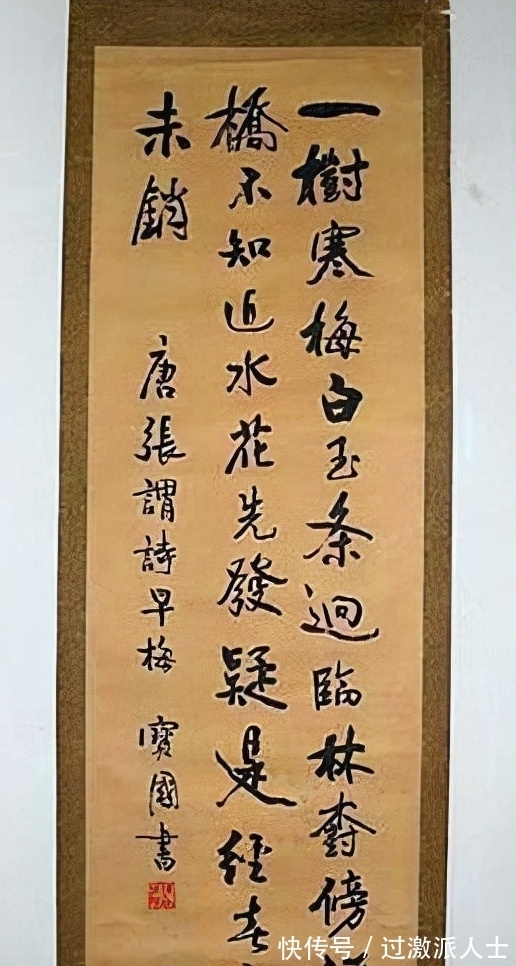 一樹寒梅白玉条迥臨林傍
橋不知近水花先發疑是經春
未銷 唐張謂詩早梅 寶國書
快传号 / 过激派人士